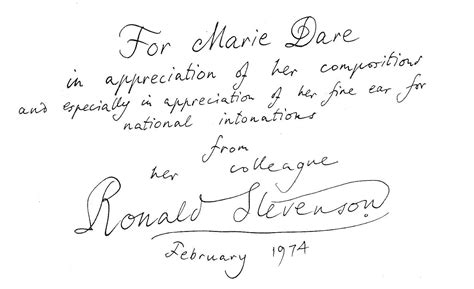 For Marie Dare
in appreciation of her compositions
and especially in appreciation of her fine ear for
national intonations
from
her colleague
Ronald Stevenson
February 1974